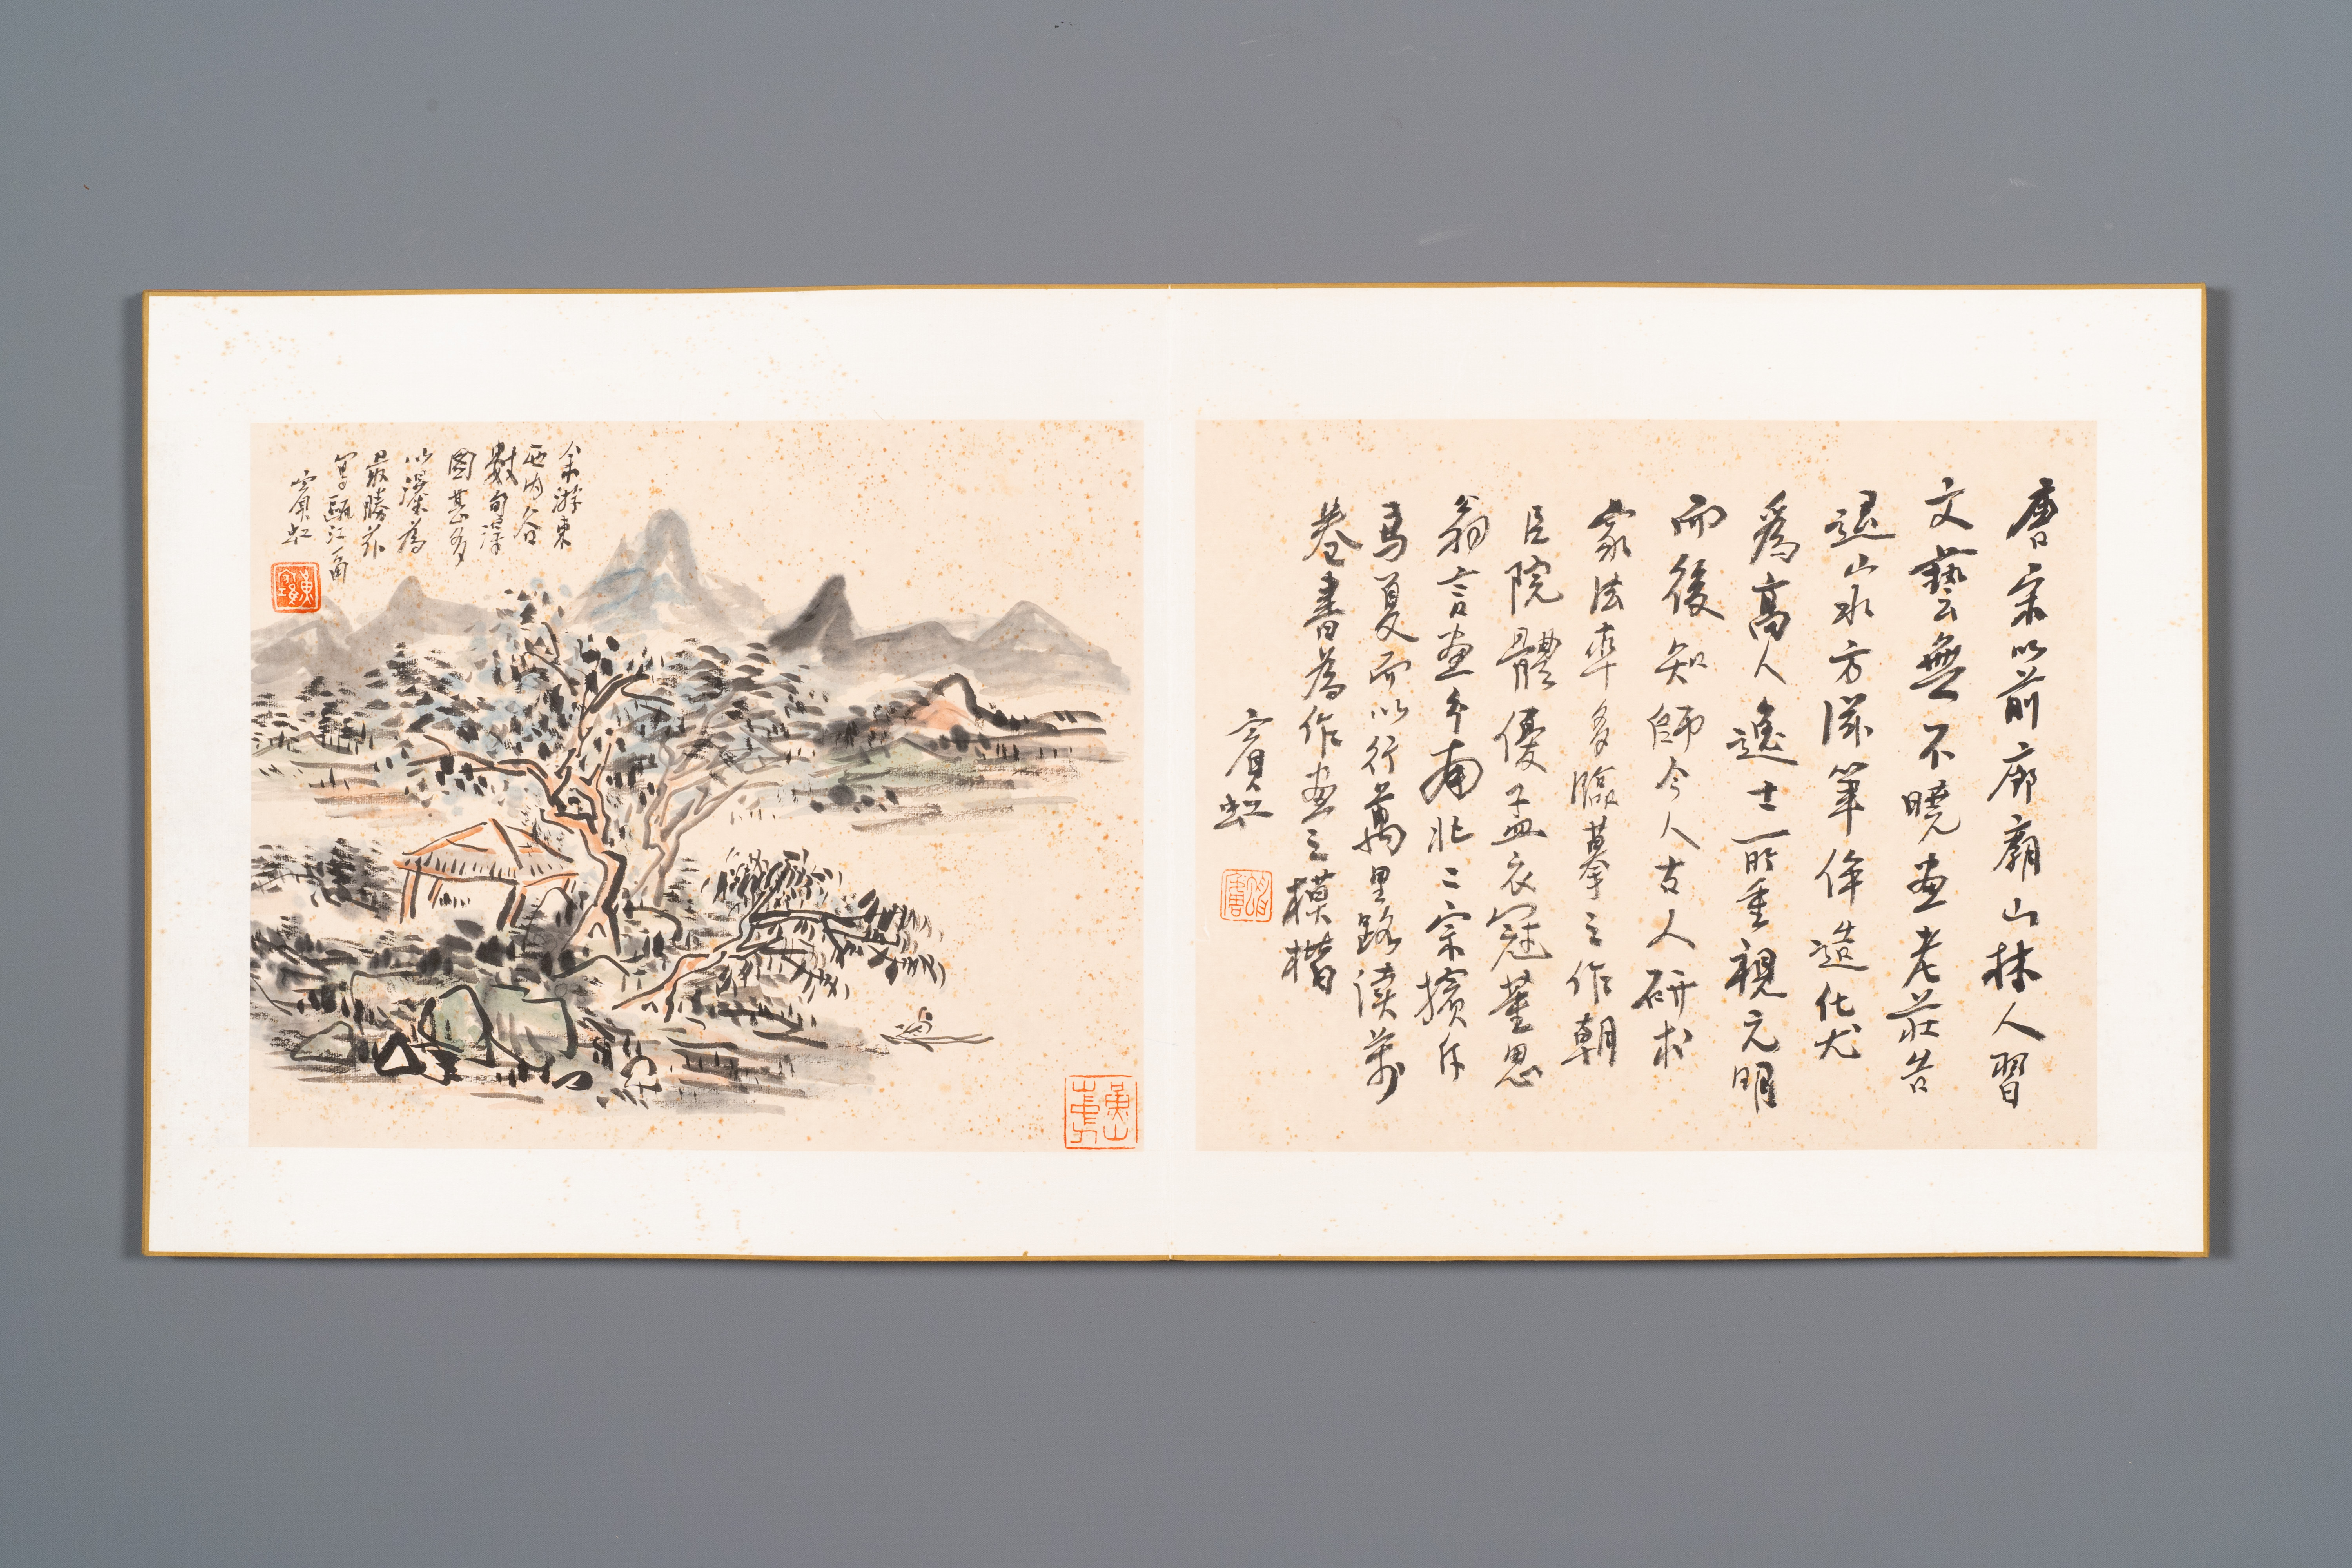 唐宋以前廊廟山林人習
文藝無不曉畫老莊告
退山水方滋筆侔造化尤
爲高人逸士所重視元明
而後知師今人古人研求
家法率多臨摹之作朝
臣院體優孟衣冠董思
翁言畫分南北二宗擯斥
馬夏而以行萬里路讀萬
卷書為作畫之模楷
賓虹
余游東
西內谷
數旬得
圖甚多
以瀑為
最勝茲
寫甌江一角
賓虹